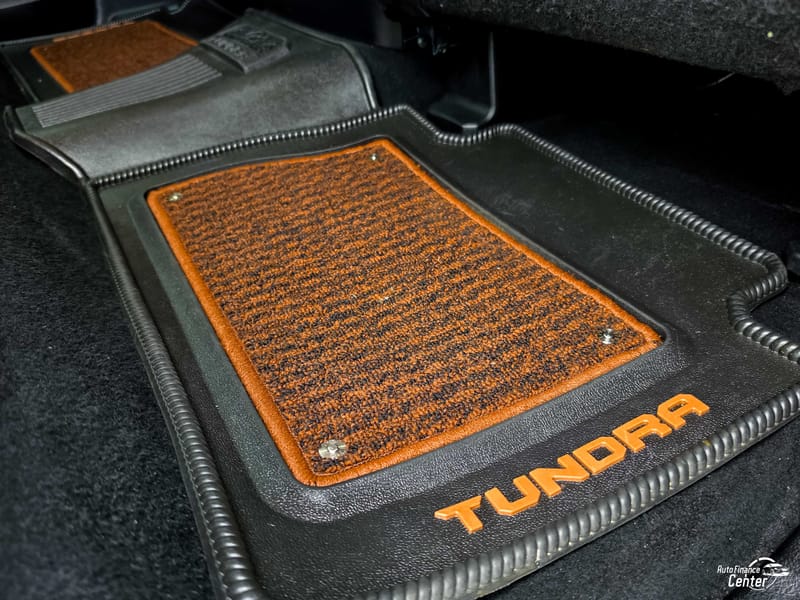 TUNDRA
AutoFinance
Center